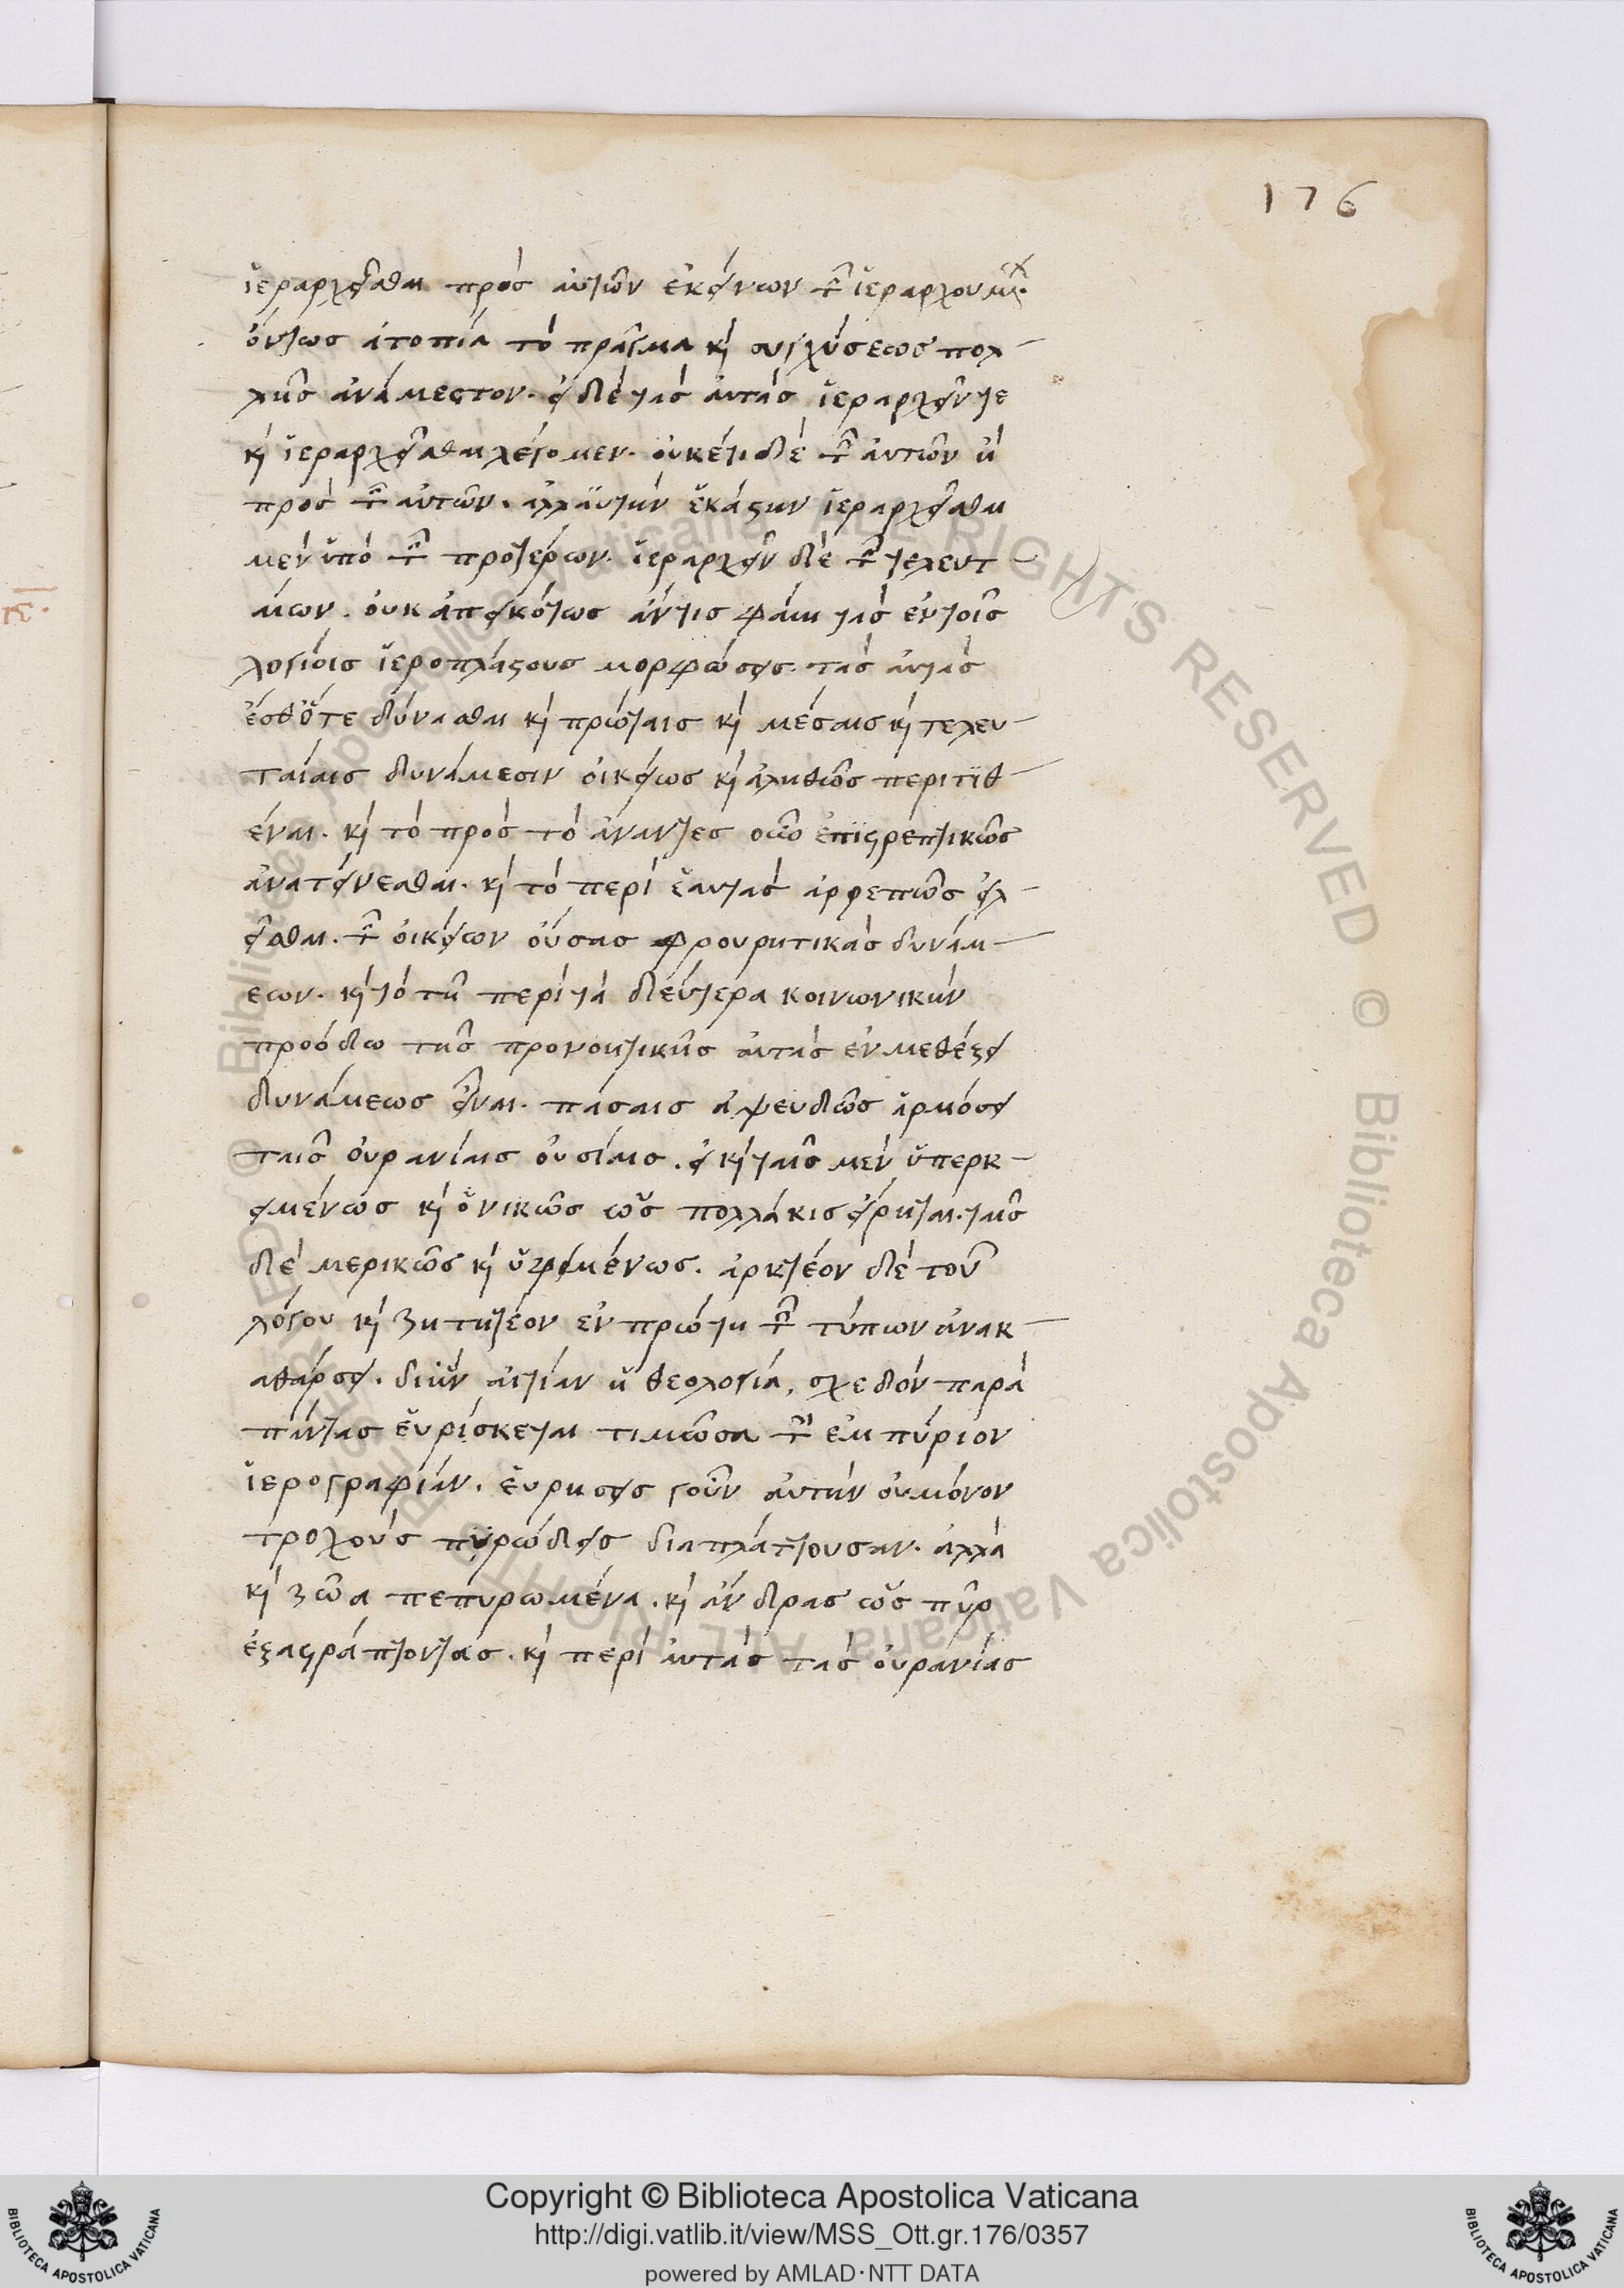 176
ἱεραρχεῖσθαι πρὸς αὐτῶν ἐκείνων τῶν ἱεραρχουμένων.
ὄντως ἀτοπία τὸ πρᾶγμα καὶ συγχύσεως πολ-
λῆς ἀνάμεστον. εἰ δὲ τὰς αὐτὰς ἱεραρχεῖν τε
καὶ ἱεραρχεῖσθαι λέγομεν. οὐκέτι δὲ τῶν αὐτῶν ἢ
πρὸς τῶν αὐτῶν. ἀλλ' αὐτὴν ἑκάστην ἱεραρχεῖσθαι
μὲν ὑπὸ τῶν προτέρων. ἱεραρχεῖν δὲ τῶν τελευτ-
αίων. οὐκ ἀπεικότως ἄν τις φαίη τὰς ἐν τοῖς
λογίοις ἱεροπλάστους μορφώσεις. τὰς αὐτὰς
ἔσθ' ὅτε δύνασθαι καὶ πρώταις καὶ μέσαις καὶ τελευ-
ταίαις δυνάμεσιν οἰκείως καὶ ἀληθῶς περιτιθ-
έναι. καὶ τὸ πρὸς τὸ ἄναντες οὖν ἐπιστρεπτικῶς
ἀνατείνεσθαι. καὶ τὸ περὶ ἑαυτὰς ἀρρεπῶς εἰλ-
εῖσθαι. τῶν οἰκείων οὔσας φρουρητικὰς δυνάμ-
εων. καὶ τὸ τῇ περὶ τὰ δεύτερα κοινωνικὴν
προόδω τῆς προνοητικῆς αὐτὰς ἐν μεθέξει
δυνάμεως εἶναι. πάσαις ἀψευδῶς ἁρμόσει
ταῖς οὐρανίαις οὐσίαις. εἰ καὶ ταῖς μὲν ὑπερκ-
ειμένως καὶ ὁλικῶς ὡς πολλάκις εἴρηται. ταῖς
δὲ μερικῶς καὶ ὑφειμένως. ἀρκτέον δὲ τοῦ
λόγου καὶ ζητητέον ἐν πρώτη τῶν τύπων ἀνακ-
αθάρσει. δι' ἣν αἰτίαν ἡ θεολογία, σχεδὸν παρὰ
πάντας εὑρίσκεται τιμῶσα τὴν ἐμπύριον
ἱερογραφίαν. εὑρήσεις γοῦν αὐτὴν οὐ μόνον
τροχοὺς πυρώδεις διαπλάττουσαν. ἀλλὰ
καὶ ζῶα πεπυρωμένα. καὶ ἄνδρας ὡς πῦρ
ἐξαστράπτοντας. καὶ περὶ αὐτὰς τὰς οὐρανίας
Copyright © Biblioteca Apostolica Vaticana
http://digi.vatlib.it/view/MSS_Ott.gr.176/0357
powered by AMLAD·NTT DATA